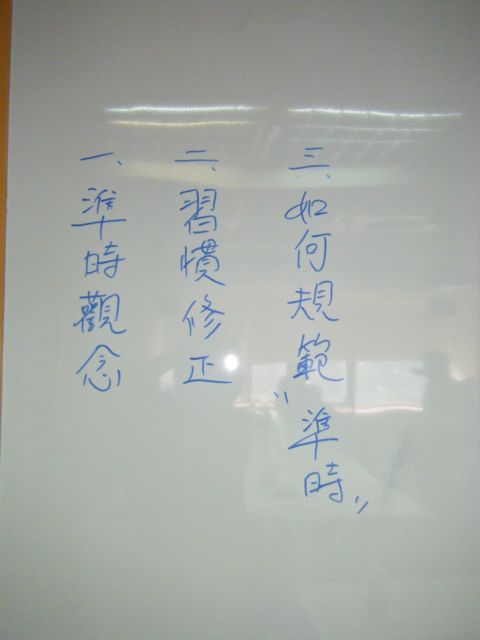 一、準時觀念
二、習慣修正
三、如何規範"準時"